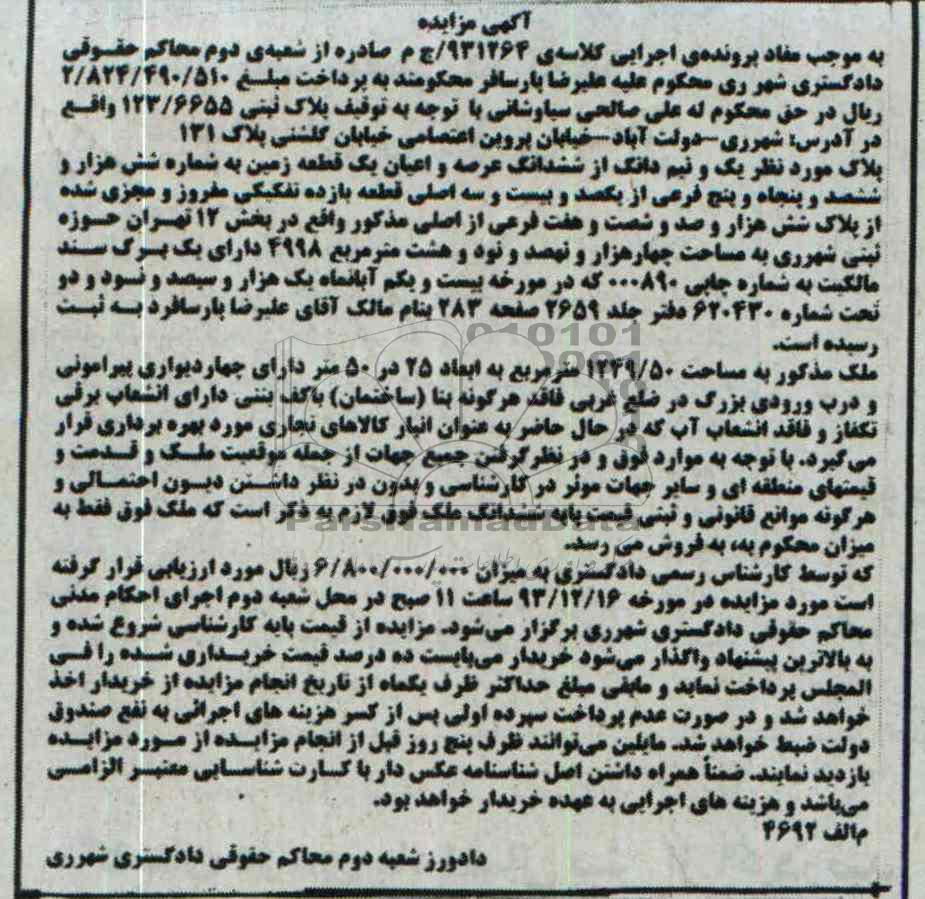 آگهی مزایده
به موجب مفاد پرونده‌ی اجرایی کلاسه‌ی ۹۳۱۲۶۴/ج م صادره از شعبه‌ی دوم محاکم حقوقی
دادگستری شهر ری محکوم علیه علیرضا پارسافر محکومند به پرداخت مبلغ ۲/۸۲۴/۴۹۰/۵۱۰
ریال در حق محکوم له علی صالحی سیاوشانی با توجه به توقیف پلاک ثبتی ۱۲۳/۶۶۵۵ واقع
در آدرس: شهرری-دولت آباد-خیابان پروین اعتصامی خیابان گلشنی پلاک ۱۳۱
پلاک مورد نظر یک و نیم دانگ از ششدانگ عرصه و اعیان یک قطعه زمین به شماره شش هزار و
ششصد و پنجاه و پنج فرعی از یکصد و بیست و سه اصلی قطعه یازده تفکیکی مفروز و مجزی شده
از پلاک شش هزار و صد و شصت و هفت فرعی از اصلی مذکور واقع در بخش ۱۲ تهران حوزه
ثبتی شهرری به مساحت چهارهزار و نهصد و نود و هشت مترمربع ۴۹۹۸ دارای یک برگ سند
مالکیت به شماره چاپی ۰۰۰۸۹۰ که در مورخه بیست و یکم آبانماه یک هزار و سیصد و نود و دو
تحت شماره ۶۲۰۴۳۰ دفتر جلد ۲۶۵۹ صفحه ۲۸۳ بنام مالک آقای علیرضا پارسافرد به ثبت
رسیده است.
ملک مذکور به مساحت ۱۲۴۹/۵۰ مترمربع به ابعاد ۲۵ در ۵۰ متر دارای چهاردیواری پیرامونی
و درب ورودی بزرگ در ضلع غربی فاقد هرگونه بنا (ساختمان) باکف بتنی دارای انشعاب برقی
تکفاز و فاقد انشعاب آب که در حال حاضر به عنوان انبار کالاهای تجاری مورد بهره برداری قرار
می‌گیرد. با توجه به موارد فوق و در نظرگرفتن جمیع جهات از جمله موقعیت ملک و قدمت و
قیمتهای منطقه ای و سایر جهات موثر در کارشناسی و بدون در نظر داشتن دیون احتمالی و
هرگونه موانع قانونی و ثبتی قیمت پایه ششدانگ ملک فوق لازم به ذکر است که ملک فوق فقط به
میزان محکوم به، به فروش می رسد.
که توسط کارشناس رسمی دادگستری به میزان ۶/۸۰۰/۰۰۰/۰۰۰ ریال مورد ارزیابی قرار گرفته
است مورد مزایده در مورخه ۹۳/۱۲/۱۶ ساعت ۱۱ صبح در محل شعبه دوم اجرای احکام مدنی
محاکم حقوقی دادگستری شهرری برگزار می‌شود. مزایده از قیمت پایه کارشناسی شروع شده و
به بالاترین پیشنهاد واگذار می‌شود خریدار می‌بایست ده درصد قیمت خریداری شده را فی
المجلس پرداخت نماید و مابقی مبلغ حداکثر ظرف یکماه از تاریخ انجام مزایده از خریدار اخذ
خواهد شد و در صورت عدم پرداخت سپرده اولی پس از کسر هزینه های اجرائی به نفع صندوق
دولت ضبط خواهد شد. مایلین می‌توانند ظرف پنج روز قبل از انجام مزایده از مورد مزایده
بازدید نمایند. ضمناً همراه داشتن اصل شناسنامه عکس دار یا کارت شناسایی معتبر الزامی
می‌باشد و هزینه های اجرایی به عهده خریدار خواهد بود.
م‌الف ۴۶۹۲
دادورز شعبه دوم محاکم حقوقی دادگستری شهرری
ParsNamadData